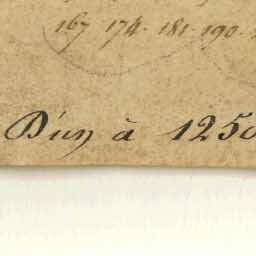 167 174. 181. 190.
D'uy à 1250